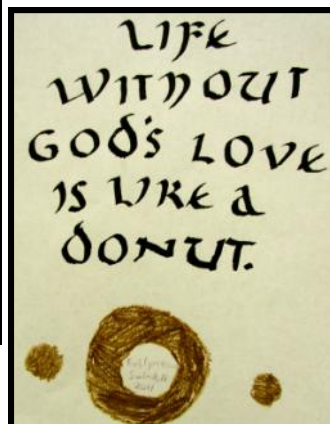 LIFE
WITHOUT
GOD'S LOVE
IS LIKE A
DONUT.